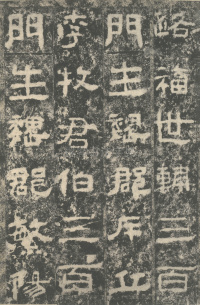 路福世輔三百
門生魏郡斥丘
李牧君伯三百
門生魏郡繁陽